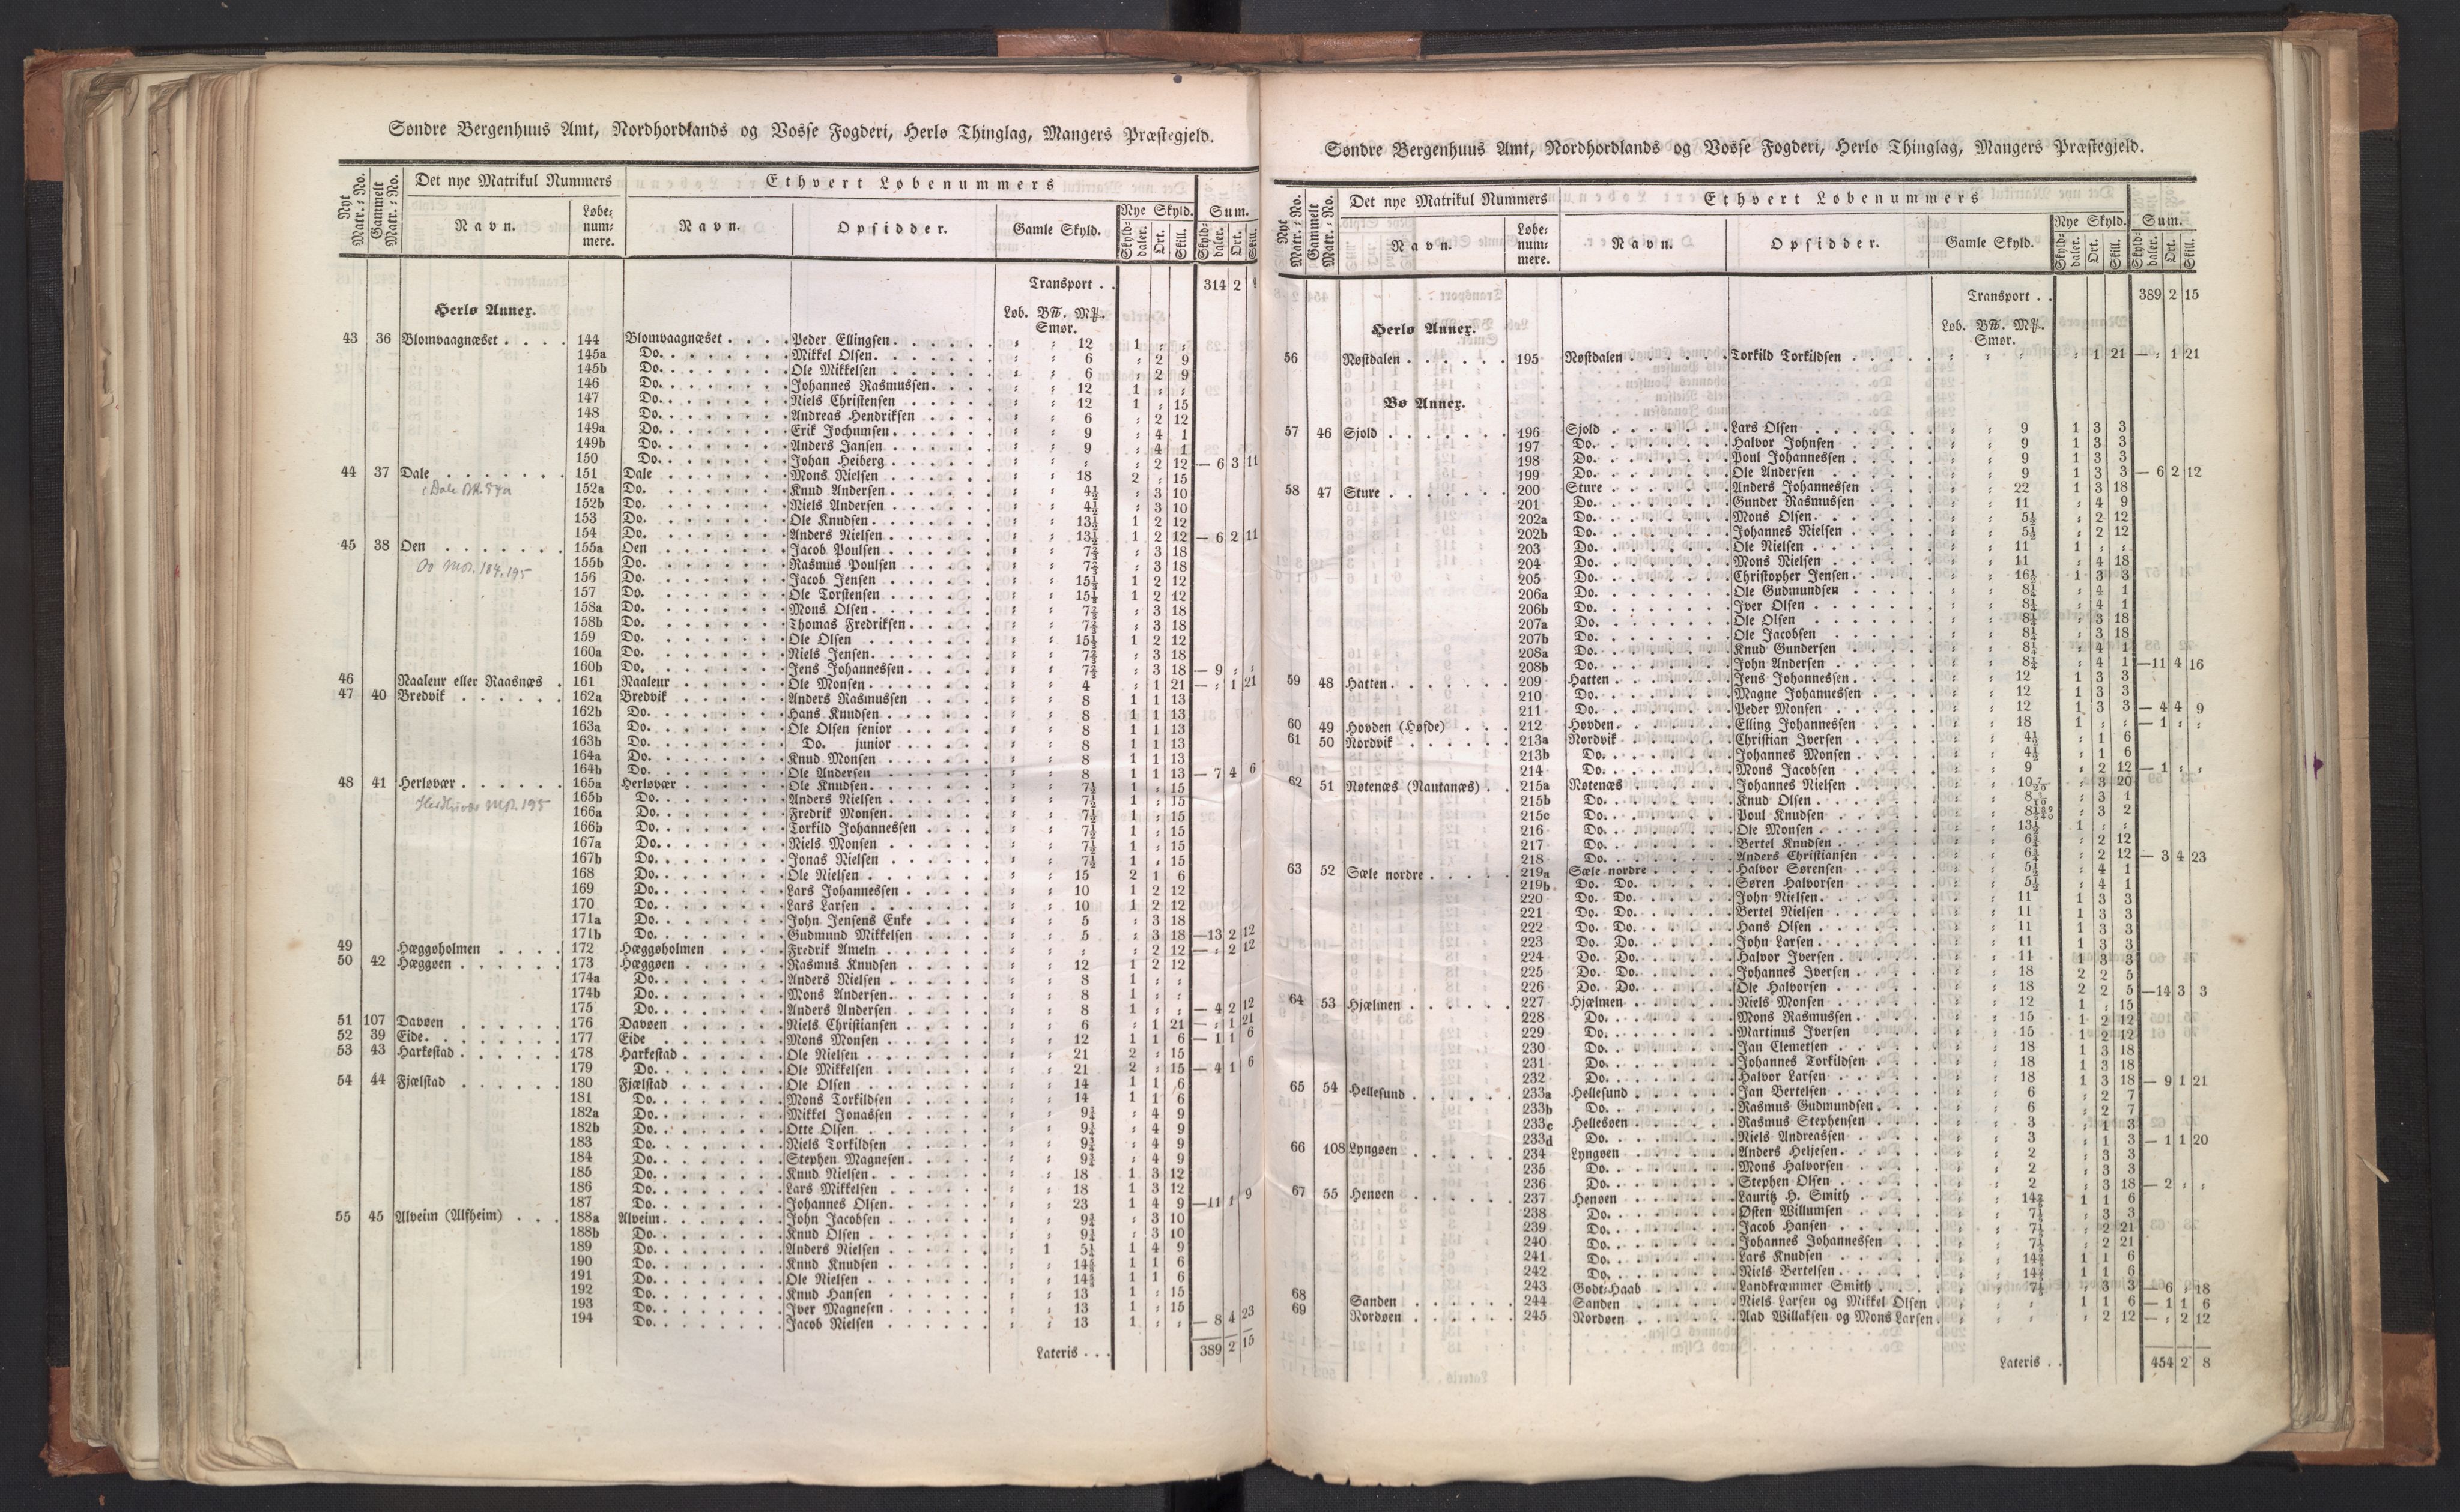 Søndre Bergenhuus Amt, Nordhordlands og Vosse Fogderi, Herlø Thinglag, Mangers Præstegjeld.
Nye Matr.-No. Gammelt Matr.-No. Det nye Matrikul Nummers Ethvert Løbenummers
Navn. Løbenummere. Navn. Opsidder. Gamle Skyld. Nye Skyld. Sum.
Skylddaler. Ort. Skill. Skylddaler. Ort. Skill.
Transport . . 314 2
Herlø Annex. Løb. B℔. M℔. Smør.
43 36 Blomvaagnæset 144 Blomvaagnæset Peder Ellingsen 12 1 : :
145a Do. Mikkel Olsen 6 : 2 9
145b Do. Ole Mikkelsen 6 : 2 9
146 Do. Johannes Rasmussen 12 1 : :
147 Do. Niels Christensen 12 1 : 15
148 Do. Andreas Hendriksen 6 : 2 12
149a Do. Erik Jochumsen 9 : 4 1
149b Do. Anders Jansen 9 : 4 1
150 Do. Johan Heiberg : : 2 12 — 6 3 11
44 37 Dale 151 Dale Mons Nielsen 18 2 : 15
152a Do. Knud Andersen 4½ : 3 10
152b Do. Niels Andersen 4½ : 3 10
153 Do. Ole Knudsen 13½ 1 2 12
154 Do. Anders Nielsen 13½ 1 2 12 — 6 2 11
45 38 Oen 155a Oen Jacob Poulsen 7⅔ : 3 18
155b Do. Rasmus Poulsen 7⅔ : 3 18
156 Do. Jacob Jensen 15⅓ 1 2 12
157 Do. Ole Torstensen 15⅓ 1 2 12
158a Do. Mons Olsen 7⅔ : 3 18
158b Do. Thomas Fredriksen 7⅔ : 3 18
159 Do. Ole Olsen 15⅓ 1 2 12
160a Do. Niels Jensen 7⅔ : 3 18
160b Do. Jens Johannessen 7⅔ : 3 18 — 9 : :
46 Raaleur eller Raasnæs 161 Raaleur Ole Monsen 4 : 1 21 — : 1 21
47 40 Bredvik 162a Bredvik Anders Rasmussen 8 1 1 13
162b Do. Hans Knudsen 8 1 1 13
163a Do. Ole Olsen senior 8 1 1 13
163b Do. Do. junior 8 1 1 13
164a Do. Knud Monsen 8 1 1 13
164b Do. Ole Andersen 8 1 1 13 — 7 4 6
48 41 Herløvær 165a Herløvær Ole Knudsen 7½ 1 : 15
165b Do. Anders Nielsen 7½ 1 : 15
166a Do. Fredrik Monsen 7½ 1 : 15
166b Do. Torkild Johannessen 7½ 1 : 15
167a Do. Niels Monsen 7½ 1 : 15
167b Do. Jonas Nielsen 7½ 1 : 15
168 Do. Ole Nielsen 15 2 1 6
169 Do. Lars Johannessen 10 1 2 12
170 Do. Lars Larsen 10 1 2 12
171a Do. John Jensens Enke 5 : 3 18
171b Do. Gudmund Mikkelsen 5 : 3 18 — 13 2 12
49 Hæggøholmen 172 Hæggøholmen Fredrik Ameln : : 2 12 — : 2 12
50 42 Hæggøen 173 Hæggøen Rasmus Knudsen 12 1 2 12
174a Do. Anders Nielsen 8 1 : :
174b Do. Mons Andersen 8 1 : :
175 Do. Anders Andersen 8 1 : : — 4 2 12
51 107 Davøen 176 Davøen Niels Christiansen 6 : 1 21 — : 1 21
52 39 Eide 177 Eide Mons Monsen 12 1 1 6 — 1 1 6
53 43 Harkestad 178 Harkestad Ole Nielsen 21 2 : 15
179 Do. Ole Mikkelsen 21 2 : 15 — 4 1 6
54 44 Fjælstad 180 Fjælstad Ole Olsen 14 1 1 6
181 Do. Mons Torkildsen 14 1 1 6
182a Do. Mikkel Jonassen : 4 9
182b Do. Otte Olsen : 4 9
183 Do. Niels Torkildsen : 4 9
184 Do. Stephen Magnesen : 4 9
185 Do. Knud Nielsen 18 1 3 12
186 Do. Lars Mikkelsen 18 1 3 12
187 Do. Johannes Olsen 23 1 4 9 — 11 1 9
55 45 Alveim (Alfheim) 188a Alveim John Jacobsen : 3 10
188b Do. Knud Olsen : 3 10
189 Do. Anders Nielsen 1 1 4 9
190 Do. Knud Knudsen 1 1 6
191 Do. Ole Nielsen 1 1 6
192 Do. Knud Hansen 13 1 : 15
193 Do. Iver Magnesen 13 1 : 15
194 Do. Jacob Nielsen 13 1 : : — 8 4 23
Lateris . . . 389 2 15
Søndre Bergenhuus Amt, Nordhordlands og Vosse Fogderi, Herlø Thinglag, Mangers Præstegjeld.
Nye Matr.-No. Gammelt Matr.-No. Det nye Matrikul Nummers Ethvert Løbenummers
Navn. Løbenummere. Navn. Opsidder. Gamle Skyld. Nye Skyld. Sum.
Skylddaler. Ort. Skill. Skylddaler. Ort. Skill.
Transport . . 389 2 15
Herlø Annex. Løb. B℔. M℔. Smør.
56 Nøstdalen 195 Nøstdalen Torkild Torkildsen : : 1 21 — : 1 21
Bø Annex.
57 46 Sjold 196 Sjold Lars Olsen 9 1 3 3
197 Do. Halvor Johnsen 9 1 3 3
198 Do. Poul Johannessen 9 1 3 3
199 Do. Ole Andersen 9 1 3 3 — 6 2 12
58 47 Sture 200 Sture Anders Johannessen 22 1 3 18
201 Do. Gunder Rasmussen 11 : 4 9
202a Do. Mons Olsen 5½ : 2 12
202b Do. Johannes Nielsen 5½ : 2 12
203 Do. Ole Nielsen 11 1 : :
204 Do. Mons Nielsen 11 : 4 18
205 Do. Christopher Jensen 16½ 1 3 3
206a Do. Ole Gudmundsen 8¼ : 4 1
206b Do. Iver Olsen 8¼ : 4 1
207a Do. Ole Olsen 8¼ : 3 18
207b Do. Ole Jacobsen 8¼ : 3 18
208a Do. Knud Gundersen 8¼ : 4 1
208b Do. John Andersen 8¼ : 4 1 — 11 4 16
59 48 Hatten 209 Hatten Jens Johannessen 12 1 3 3
210 Do. Magne Johannessen 12 1 3 3
211 Do. Peder Monsen 12 1 3 3 — 4 4 9
60 49 Hovden (Høfde) 212 Hovden Elling Johannessen 18 1 : : — 1 : :
61 50 Nordvik 213a Nordvik Christian Iversen 4½ : 1 6
213b Do. Johannes Monsen 4½ : 1 6
214 Do. Mons Jacobsen 9 : 2 12 — 1 : :
62 51 Nøtenæs (Nautanæs) 215a Nøtenæs Johannes Nielsen : 3 20
215b Do. Knud Olsen : 3 1
215c Do. Poul Knudsen : 3 2
216 Do. Ole Monsen 13½ 1 : :
217 Do. Bertel Knudsen 6¾ : 2 12
218 Do. Anders Christiansen 6¾ : 2 12 — 3 4 23
63 52 Sæle nordre 219a Sæle nordre Halvor Sørensen 5½ : 4 1
219b Do. Do. Søren Halvorsen 5½ : 4 1
220 Do. Do. John Nielsen 11 1 3 3
221 Do. Do. Bertel Nielsen 11 1 3 3
222 Do. Do. Hans Olsen 11 1 3 3
223 Do. Do. John Larsen 11 1 3 3
224 Do. Do. Halvor Iversen 11 1 3 3
225 Do. Do. Johannes Iversen 18 2 2 5
226 Do. Do. Ole Halvorsen 18 2 2 5 — 14 3 3
64 53 Hjælmen 227 Hjælmen Niels Monsen 12 1 : 15
228 Do. Mons Rasmussen 15 1 2 12
229 Do. Martinus Iversen 15 1 2 12
230 Do. Jan Clemetsen 18 1 3 18
231 Do. Johannes Torkildsen 18 1 3 18
232 Do. Halvor Larsen 18 1 3 18 — 9 1 21
65 54 Hellesund 233a Hellesund Jan Bertelsen 6 : 2 7
233b Do. Rasmus Gudmundsen 6 : 2 7
233c Hellesøen Rasmus Stephensen 3 : 1 3
233d Do. Niels Andreassen 3 : 1 3 — 1 1 20
66 108 Lyngøen 234 Lyngøen Anders Heljesen 2 : 3 3
235 Do. Mons Halvorsen 2 : 3 3
236 Do. Stephen Olsen 2 : 3 18 — 2 : :
67 55 Henøen 237 Henøen Lauritz H. Smith 1 1 6
238 Do. Østen Willumsen : 3 3
239 Do. Jacob Hansen : 2 21
240 Do. Johannes Johannessen : 2 21
241 Do. Lars Knudsen 1 1 6
242 Do. Niels Bertelsen 1 1 6
243 Godt-Haab Landkræmmer Smith : 3 3 — 6 : 18
68 Sanden 244 Sanden Niels Larsen og Mikkel Olsen : 1 1 6 — 1 1 6
69 Nordøen 245 Nordøen Aad Willaksen og Mons Larsen : : 2 12 — : 2 12
Lateris . . 454 2 8